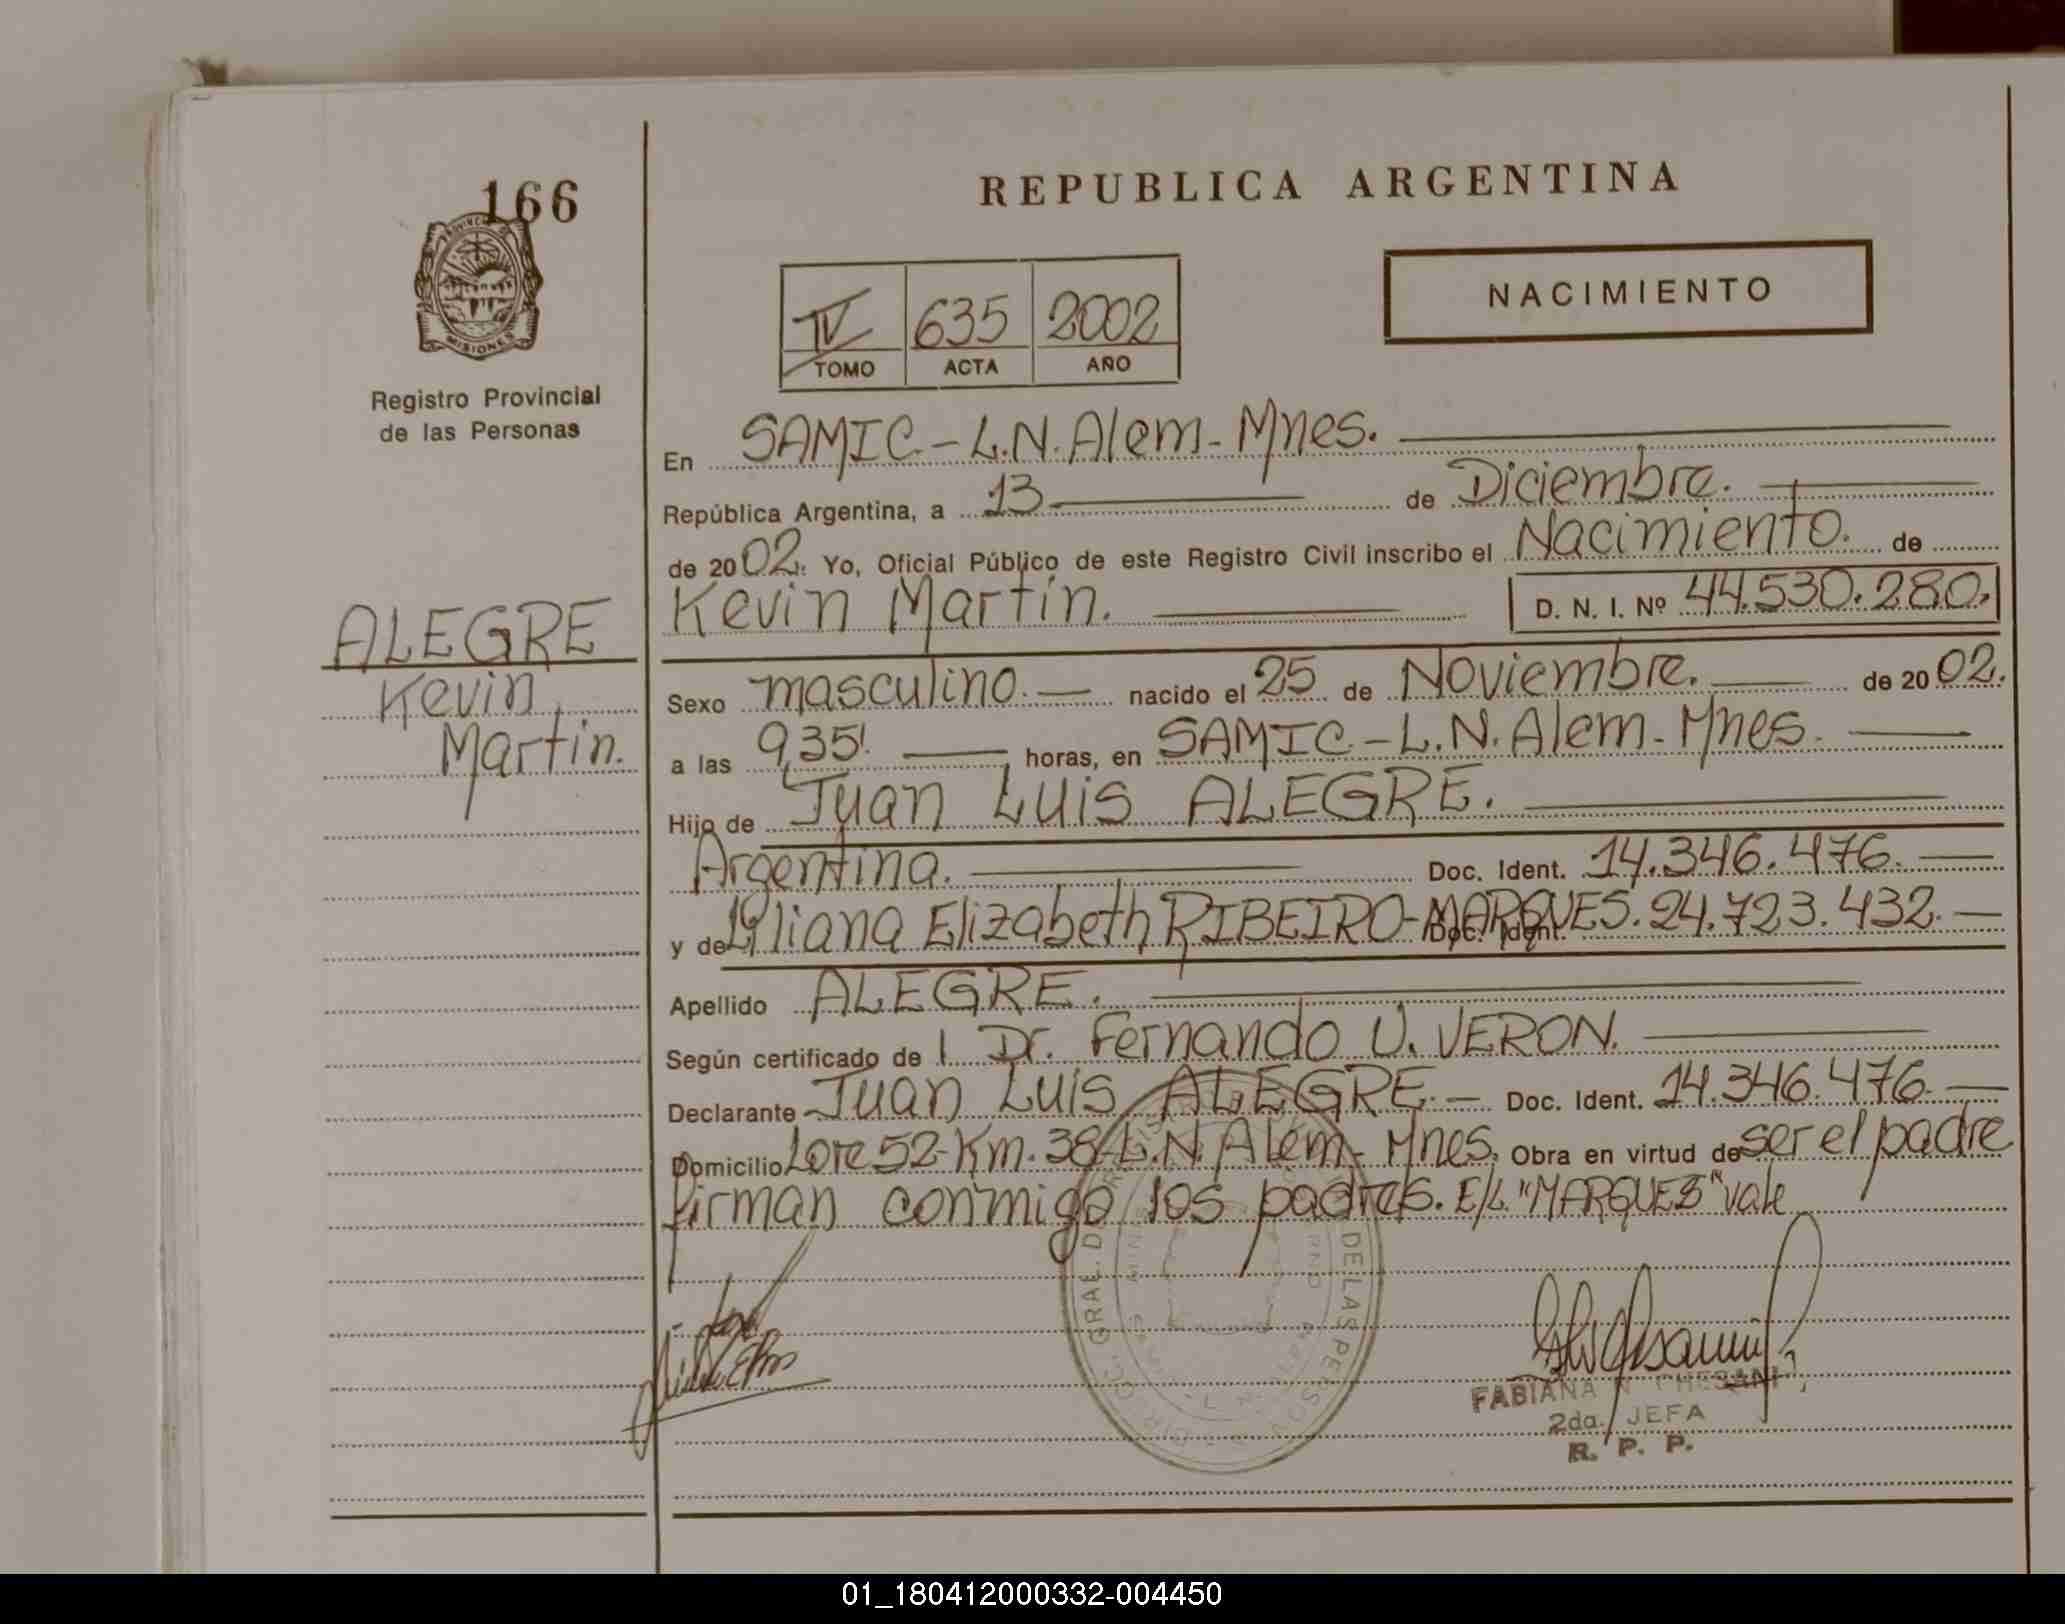 166
PROVINCIA DE
MISIONES
Registro Provincial
de las Personas
REPUBLICA ARGENTINA
NACIMIENTO
IV 635 2002
TOMO ACTA AÑO
En SAMIC-L.N.Alem-Mnes.
República Argentina, a 13 de Diciembre.
de 2002. Yo, Oficial Público de este Registro Civil inscribo el Nacimiento. de
Kevin Martin. D. N. I. Nº 44.530.280.
ALEGRE
Kevin
Martin.
Sexo masculino. nacido el 25 de Noviembre. de 2002.
a las 9,35'. horas, en SAMIC-L.N.Alem-Mnes.
Hijo de Juan Luis ALEGRE.
Argentina. Doc. Ident. 14.346.476.
y de Liliana Elizabeth RIBEIRO-MARQUES. Doc. Ident. 24.723.432.
Apellido ALEGRE.
Según certificado de l Dr. Fernando U. VERON.
Declarante Juan Luis ALEGRE.- Doc. Ident. 14.346.476.
Domicilio Lote 52-Km.38-L.N.Alem-Mnes. Obra en virtud de ser el padre
firman conmigo los padres. E/L "MARQUES" vale
DE LAS PERSO
FABIANA N. CHESANI
2da. JEFA
R. P. P.
01_180412000332-004450